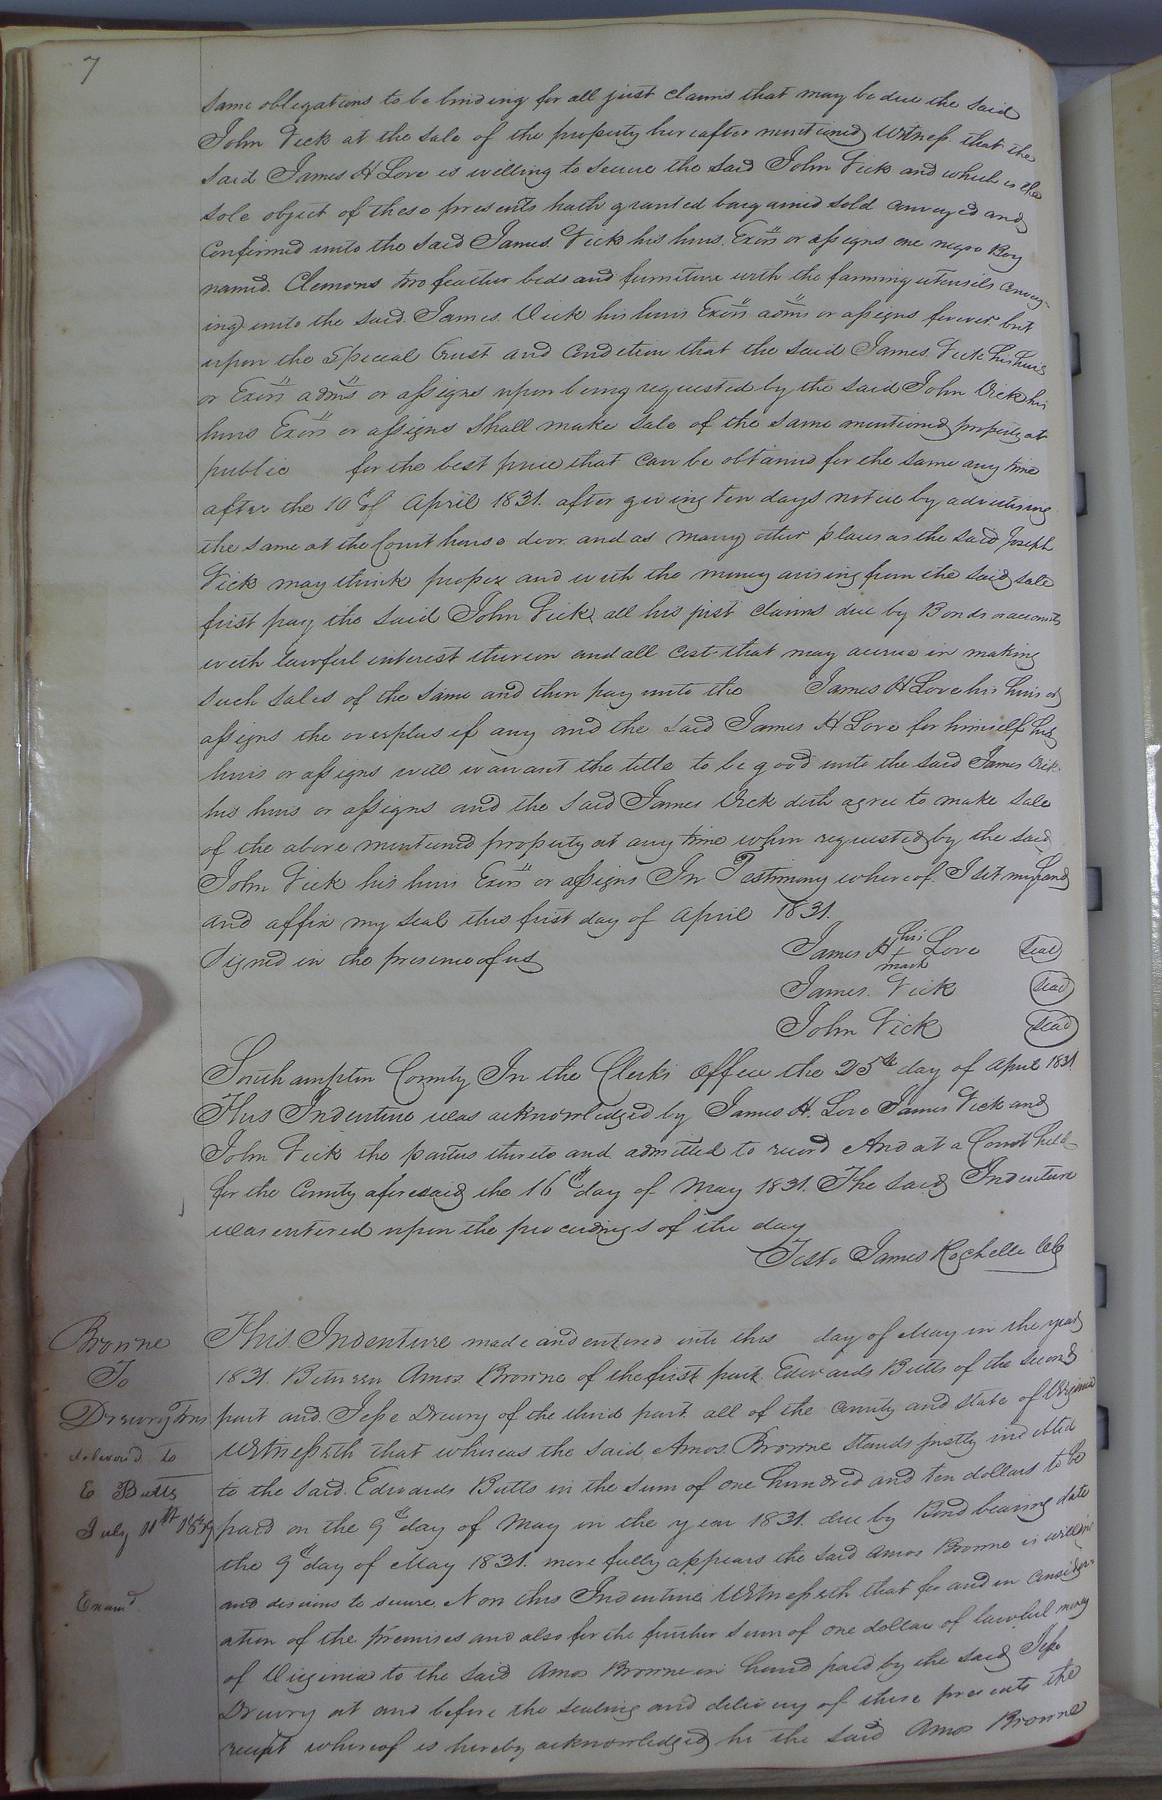 7
same obligations to be binding for all just claims that may be due the said
John Vick at the sale of the property hereafter mentioned Witness that the
said James H Love is willing to secure the said John Vick and which is the
sole object of these presents hath granted bargained sold conveyed and
confirmed unto the said James Vick his heirs Exors or assigns one negro Boy
named Clemons two feather beds and furniture with the farming utensils convey-
ing unto the said James Vick his heirs Exors adms or assigns forever but
upon the Special Trust and Condition that the said James Vick his heirs
or Exors adms or assigns upon being requested by the said John Vick his
heirs Exors or assigns Shall make sale of the same mentioned property at
public for the best price that can be obtained for the same any time
after the 10th of April 1831. after giving ten days notice by advertising
the same at the Court house door and as many other places as the said Joseph
Vick may think proper and with the money arising from the said sale
first pay the said John Vick all his just claims due by Bonds or accounts
with lawful interest thereon and all cost that may accrue in making
such sales of the same and then pay unto the James H Love his heirs or
assigns the overplus if any and the said James H Love for himself his
heirs or assigns will warrant the title to be good unto the said James Vick
his heirs or assigns and the said James Vick doth agree to make sale
of the above mentioned property at any time when requested by the said
John Vick his heirs Exors or assigns In Testimony whereof I set my hand
and affix my seal this first day of April 1831.
Signed in the presence of us
James H his + mark Love Seal
James Vick Seal
John Vick Seal
Southampton County In the Clerks office the 25th day of April 1831
This Indenture was acknowledged by James H. Love James Vick and
John Vick the parties thereto and admitted to record And at a Court held
for the County aforesaid the 16th day of May 1831. The said Indenture
was entered upon the proceedings of the day
Teste James Rochelle CC
Browne
To
Drewry
delivered to
E Butts
July 11th
Examd
This Indenture made and entered into this day of May in the year
1831. Between Amos Browne of the first part Edwards Butts of the second
part and Jesse Drewry of the third part all of the county and state of Virginia
Witnesseth that whereas the said Amos Browne stands justly indebted
to the said Edwards Butts in the sum of one hundred and ten dollars to be
paid on the 9th day of May in the year 1831 due by Bond bearing date
the 9th day of May 1831. more fully appears the said Amos Browne is willing
and desirous to secure Now this Indenture Witnesseth that for and in consider-
ation of the premises and also for the further sum of one dollar of lawful money
of Virginia to the said Amos Browne in hand paid by the said Jesse
Drewry at and before the sealing and delivery of these presents the
receipt whereof is hereby acknowledged he the said Amos Browne